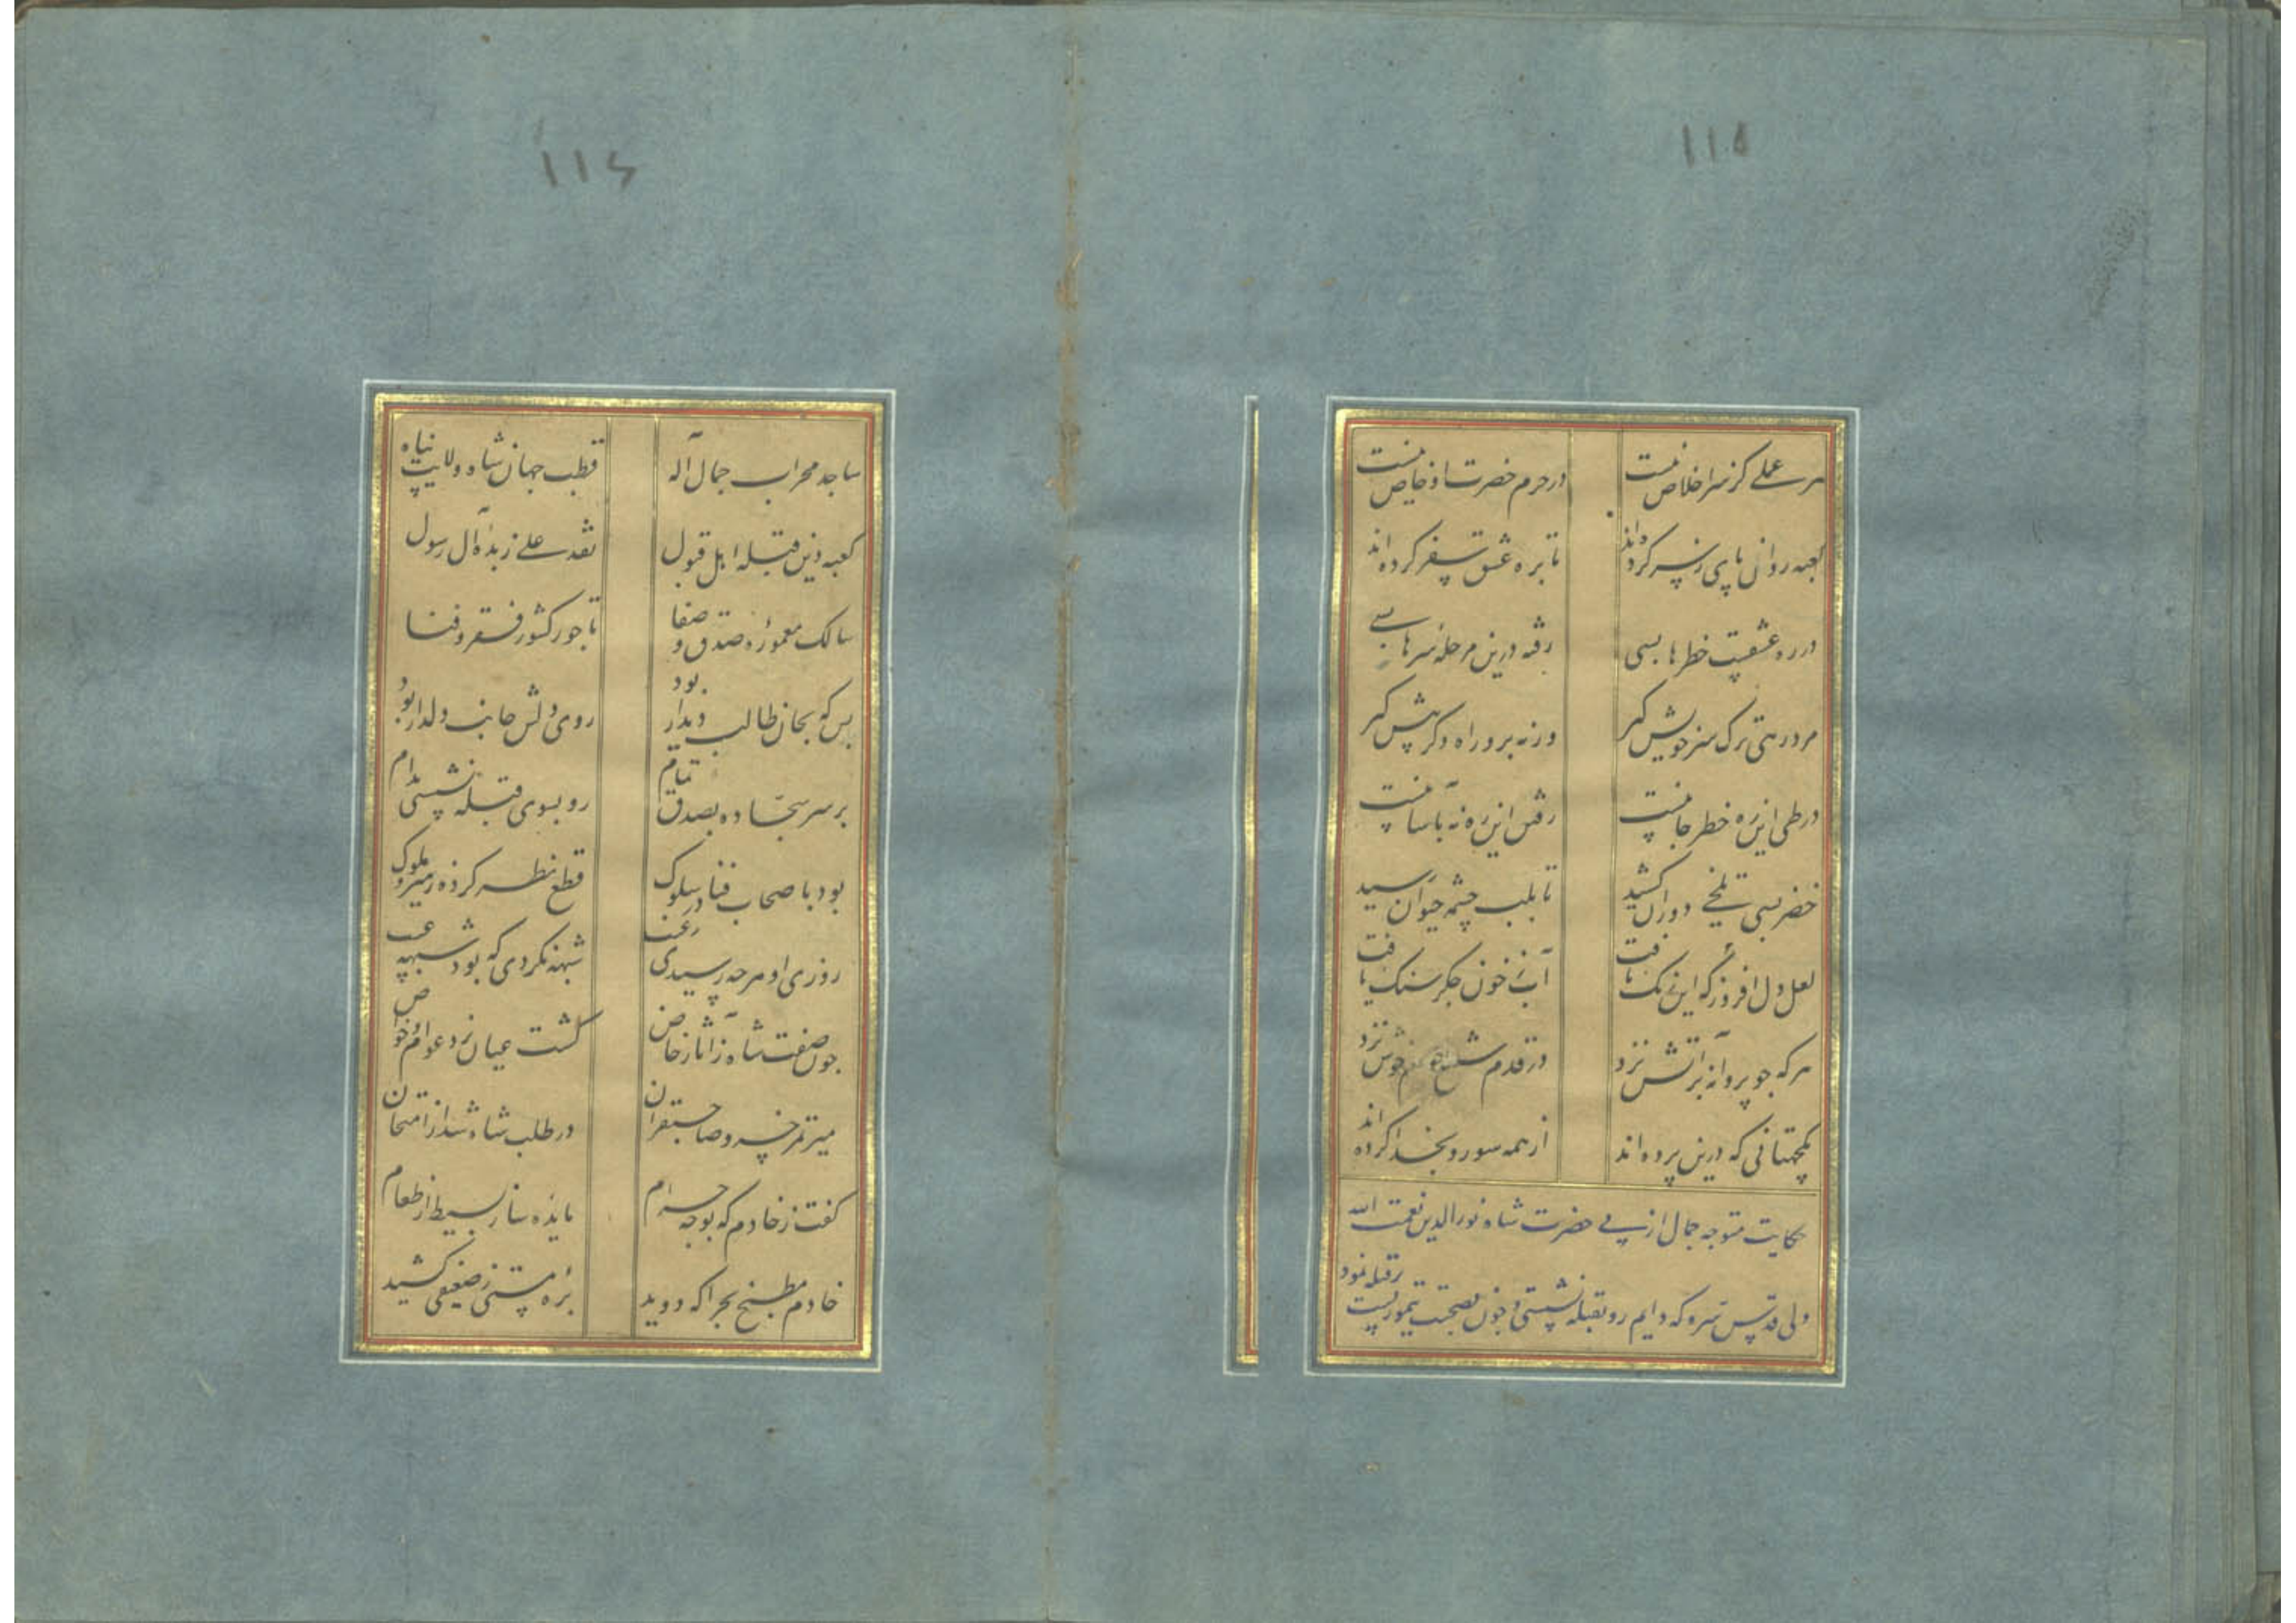 ۱۱۵
هر عملے کز سر اخلاص نیست در حرم حضرت او خاص نیست
کعبه روانی با پی ز سر کرده اند تا بره عشق سفر کرده اند
در ره عشقت خطرها بسی رفته درین مرحله سرها بسے
مرد رهی ترک سر خویش گیر ورنه برو راه دگر پیش گیر
در طی این ره خطر جانیست رفتن این ره نه بآسانیست
خضر بسی تلخی دوران کشید تا بلب چشمه حیوان رسید
لعل دل افروز که این رنگ یافت آب ز خون جگر سنک یافت
هر که چو پروانه بر آتش نزد در قدم شمع دم خوش نزد
یکجهتانی که درین پرده اند از همه سو رو بخدا کرده اند
حکایت متوجه جمال ازلی حضرت شاه نورالدین نعمت الله
ولی قدس سره که دایم رو بقبله نشستی و چون بصحبت تیمور پشت بر قبله نمود
۱۱۶
ساجد محراب جمال آله قطب جهان شاه ولایت پناه
کعبه دین قبله اهل قبول نقد علے زبده آل رسول
سالک معموره صدق و صفا تاجور کشور فقر و فنا
بس که بجان طالب دیدار بود روی دلش جانب دلدار بود
بر سر سجاده بصدق تمام رو بسوی قبله نشستی مدام
بود باصحاب فنا در سلوک قطع نظر کرده ز میر و ملوک
روزی او هر چه رسیدی ز غیب شبهه نکردی که بود شبهه عیب
چون صفت شاه ز آثار خاص گشت عیان نزد عوام و خواص
میر تمر خسرو صاحبقران در طلب شاه شد از امتحان
گفت ز خادم که بوجه حرام مایده ساز بسیط از طعام
خادم مطبخ بچراگه دوید بره مستی ز ضعیفی کشید